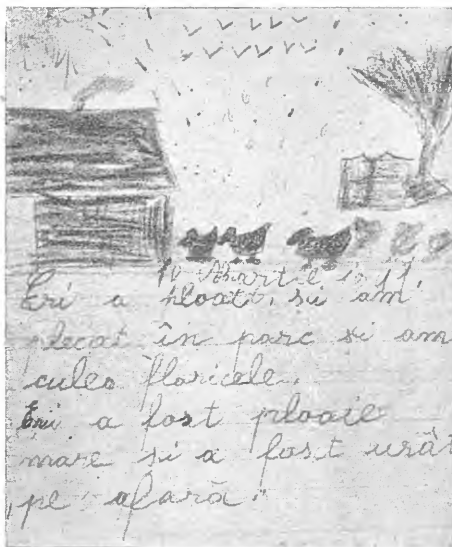 10 Martie 1911.
Eri a ploat, si am
plecat în parc si am
cules floricele.
Eri a fost ploaie
mare si a fost urât
pe afară.